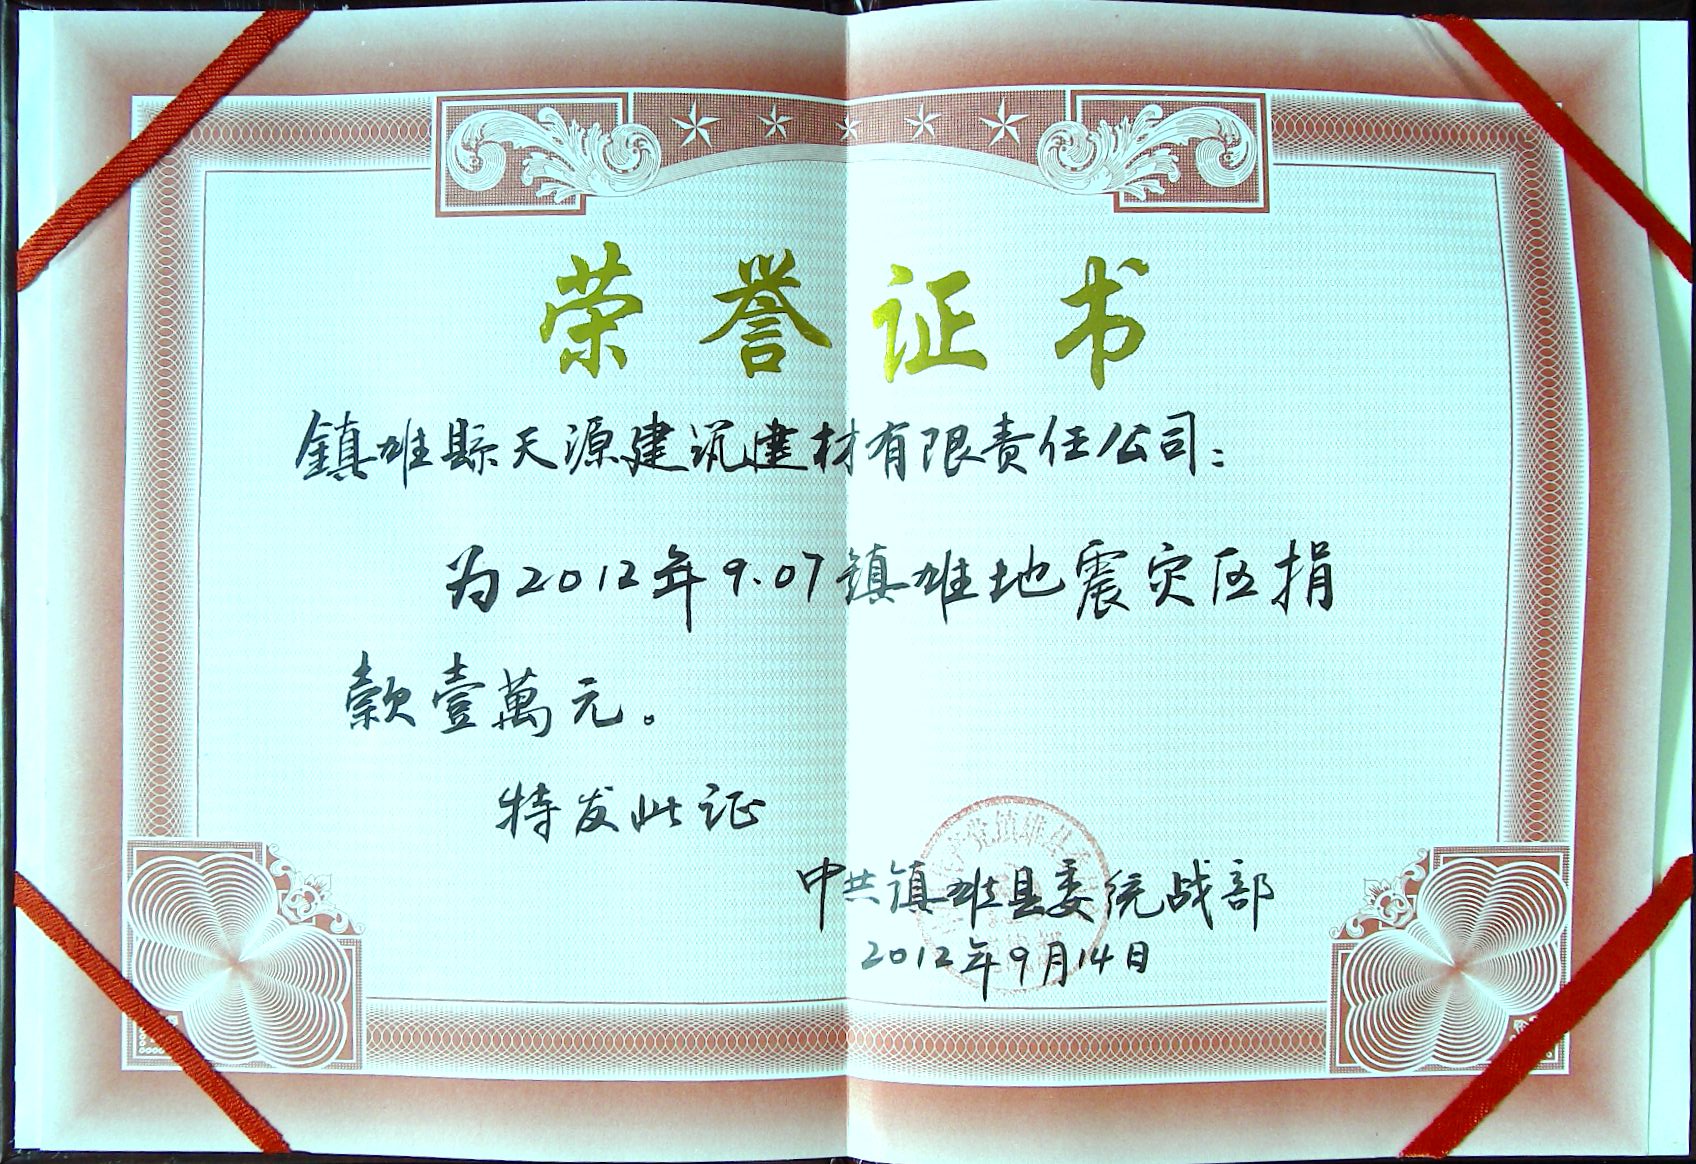 荣誉证书
鎮雄縣天源建筑建材有限责任公司：
为2012年9.07镇雄地震灾区捐
款壹萬元。
特发此证
中共镇雄县委统战部
2012年9月14日